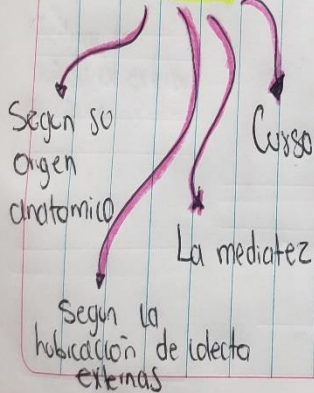 Segun su
origen
anatomico
Curso
La mediatez
Segun la
hubicación de colecta
externas